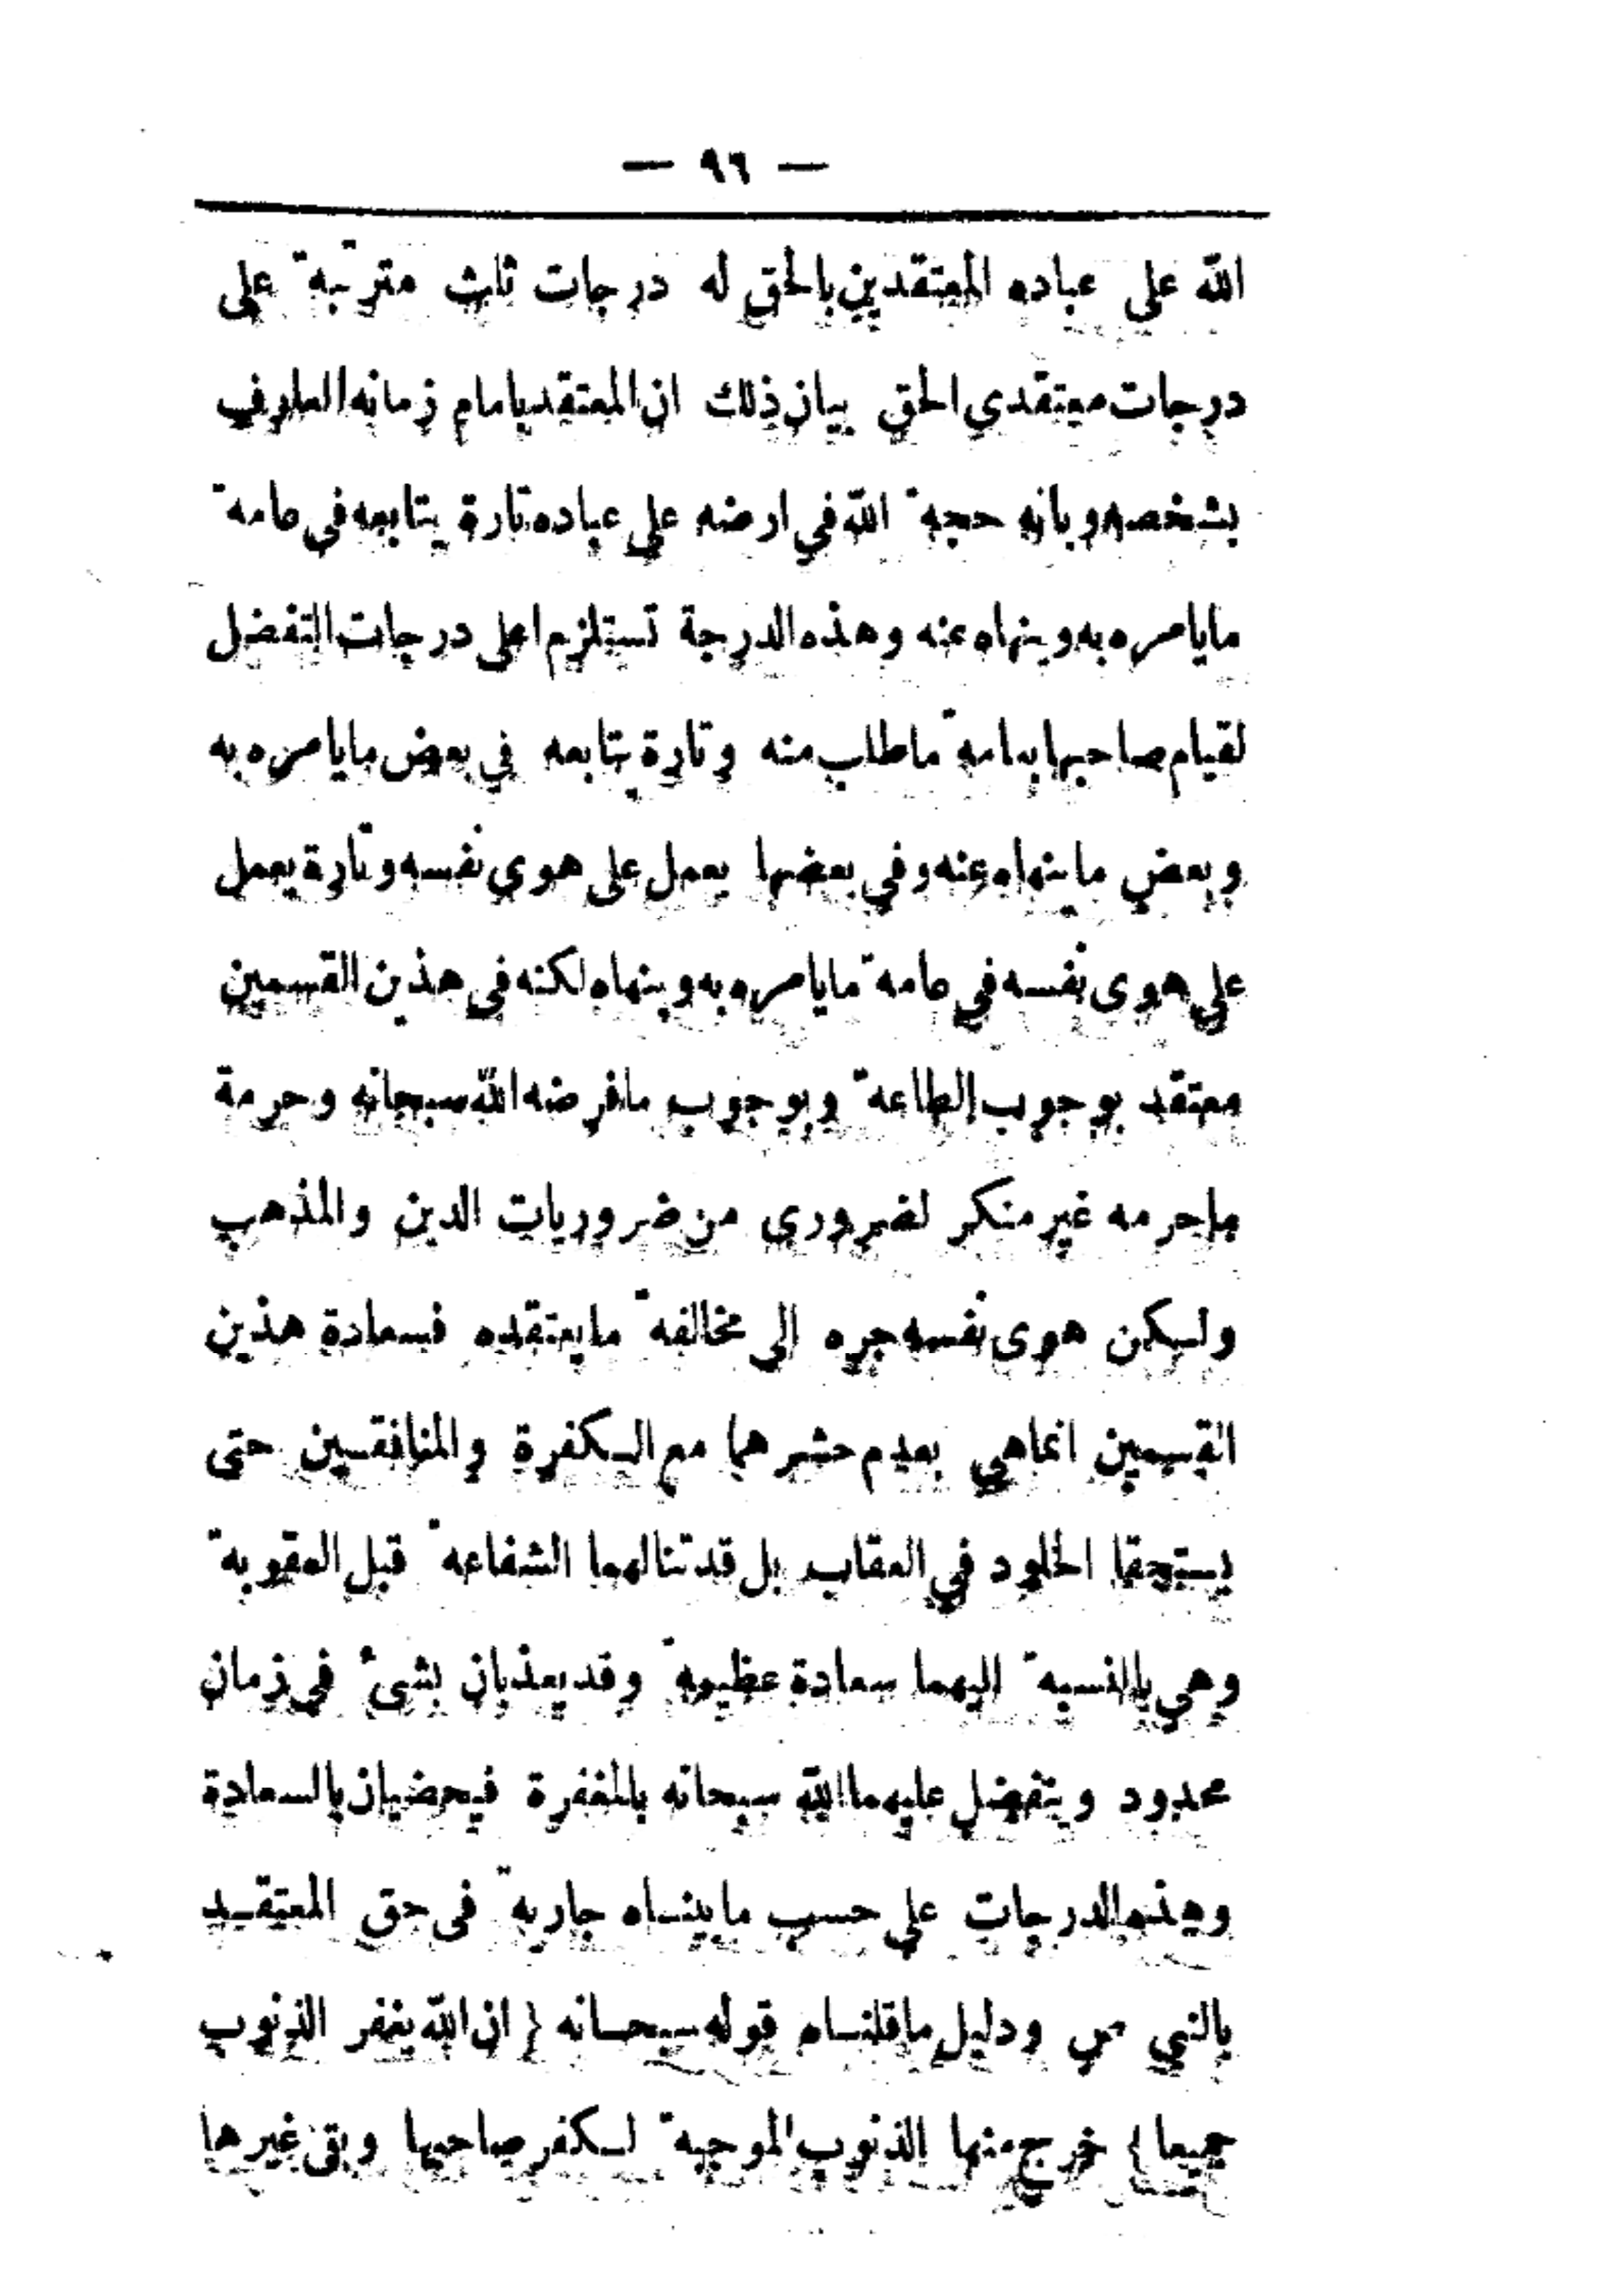 — ٩٦ —
الله على عباده المعتقدين بالحق له درجات ثلث مترتبة على
درجات معتقدي الحق بيان ذلك ان المعتقد بامام زمانه العارف
بشخصه وبانه حجة الله في ارضه على عباده تارة يتابعه في عامة
مايامره به وينهاه عنه وهذه الدرجة تستلزم اعلى درجات التفضل
لقيام صاحبها بعامة ماطلب منه وتارة يتابعه في بعض مايامره به
وبعض ماينهاه عنه وفي بعضها يعمل على هوي نفسه وتارة يعمل
على هوى نفسه في عامة مايامره به وينهاه لكنه في هذين القسمين
معتقد بوجوب الطاعة وبوجوب مافرضه الله سبحانه وحرمة
ماحرمه غير منكر لضروري من ضروريات الدين والمذهب
ولكن هوى نفسه جره الى مخالفة مايعتقده فسعادة هذين
القسمين انماهي بعدم حشرهما مع الكفرة والمنافقين حتى
يستحقا الخلود في العقاب بل قد تنالهما الشفاعة قبل العقوبة
وهي بالنسبة اليهما سعادة عظيمة وقد يعذبان بشئ في زمان
محدود ويتفضل عليهما الله سبحانه بالمغفرة فيحضيان بالسعادة
وهذه الدرجات على حسب مابيناه جارية فى حق المعتقد
بالنبي ص ودليل ماقلناه قوله سبحانه { ان الله يغفر الذنوب
جميعا } خرج منها الذنوب الموجبة لكفر صاحبها وبقى غيرها